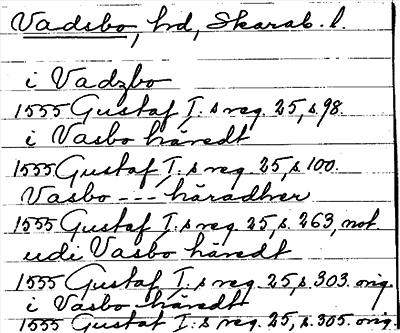 Vadsbo, hd, Skarab. l.
i Vadzbo
1555 Gustaf I:s reg. 25, s. 98.
i Vasbo häredt
1555 Gustaf I:s reg. 25, s. 100.
Vasbo --- häradher
1555 Gustaf I:s reg. 25, s. 263, not.
udi Vasbo häredt
1555 Gustaf I:s reg. 25, s. 303. orig.
i Vasbo häredt
1555 Gustaf I:s reg. 25, s. 305. orig.